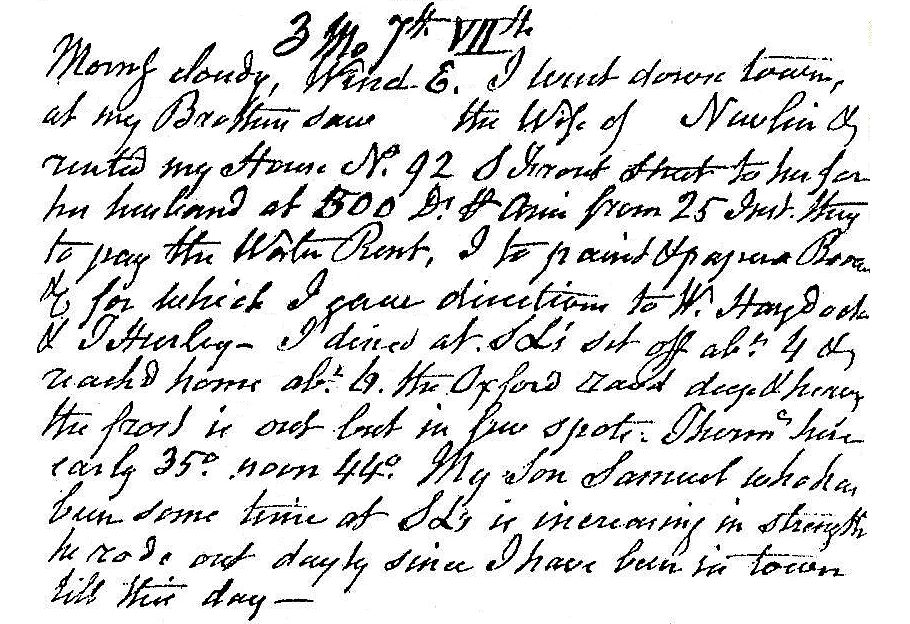 3 Mo 7th VIIth
Morng cloudy, Wind E. I went down town,
at my Brothers saw the Wife of Newlin &
rented my House No. 92 S Front Street to her for
her husband at 500 Ds. P Ann from 25 Inst. they
to pay the Water Rent, I to paint & paper a Room
&c for which I gave directions to W. Haydock
& T Hurley - I dined at SL's set off abt. 4 &
reach'd home abt. 6. the Oxford road deep & heavy
the frost is out but in few spots. Thermr. here
early 35° noon 44°. My Son Samuel who has
been some time at SL's is increasing in strength
he rode out dayly since I have been in town
till this day —